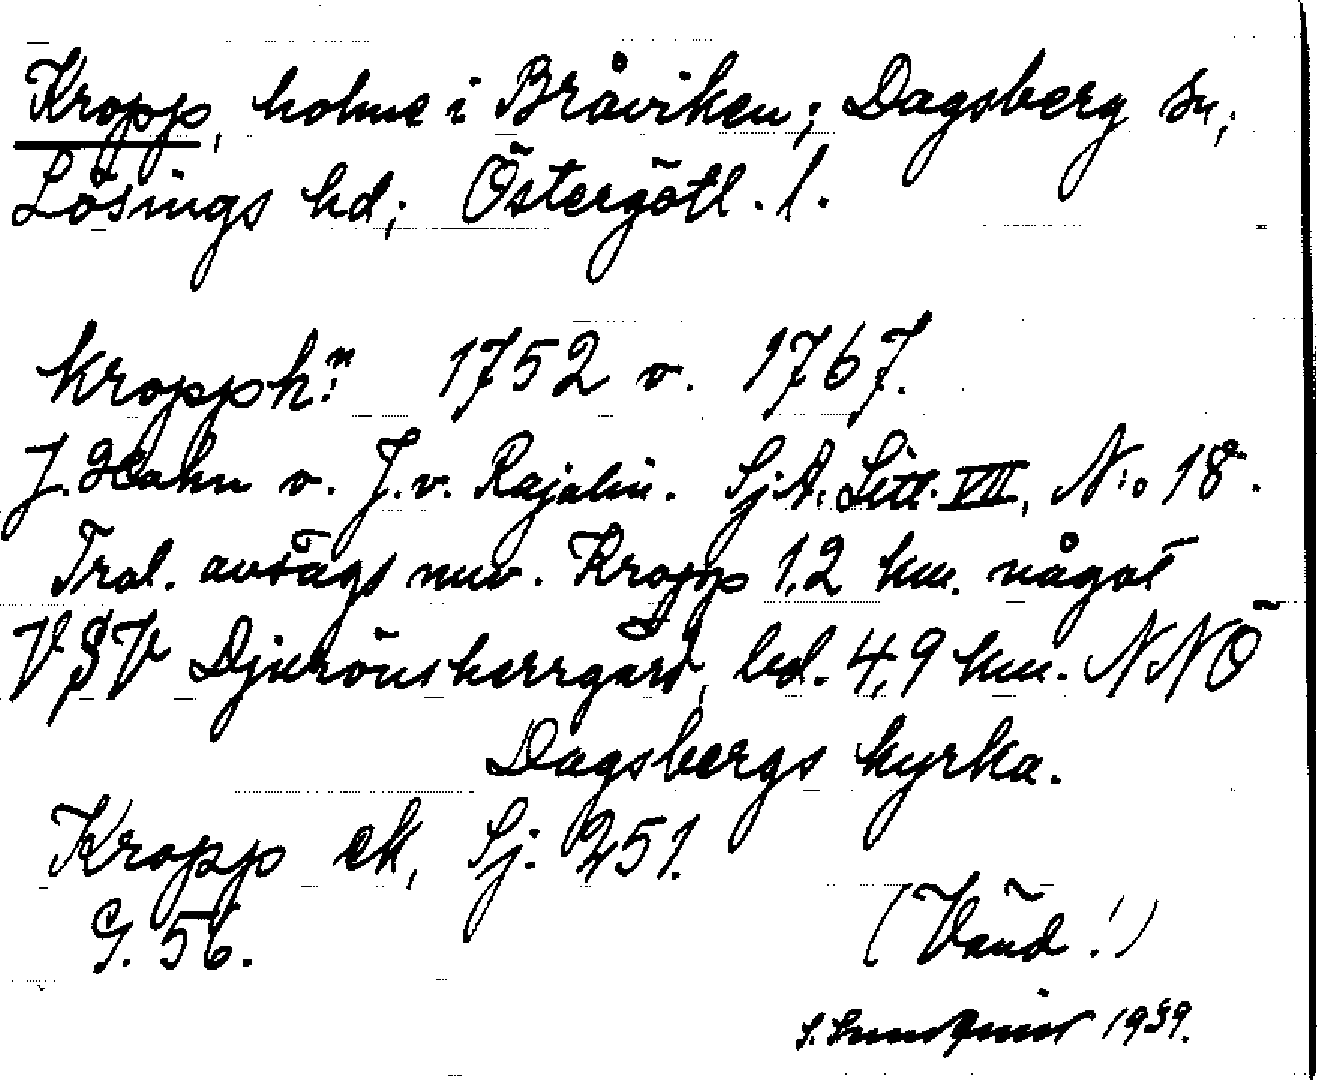 Kropp, holme i Bråviken; Dagsberg sn;
Lösings hd; Östergötl. l.
Kropph:n 1752 o. 1767.
J. Hahn o. J. v. Rajalin. Sj.A. Litt. VII, N:o 18.
Trol. avsågs nuv. Kropp 1,2 km. något
VSV Djurönsherrgård, bel. 4,9 km. NNÖ
Dagsbergs kyrka.
Kropp ek, Sj. 251.
G. 56.
(Vänd!)
S. 1939.